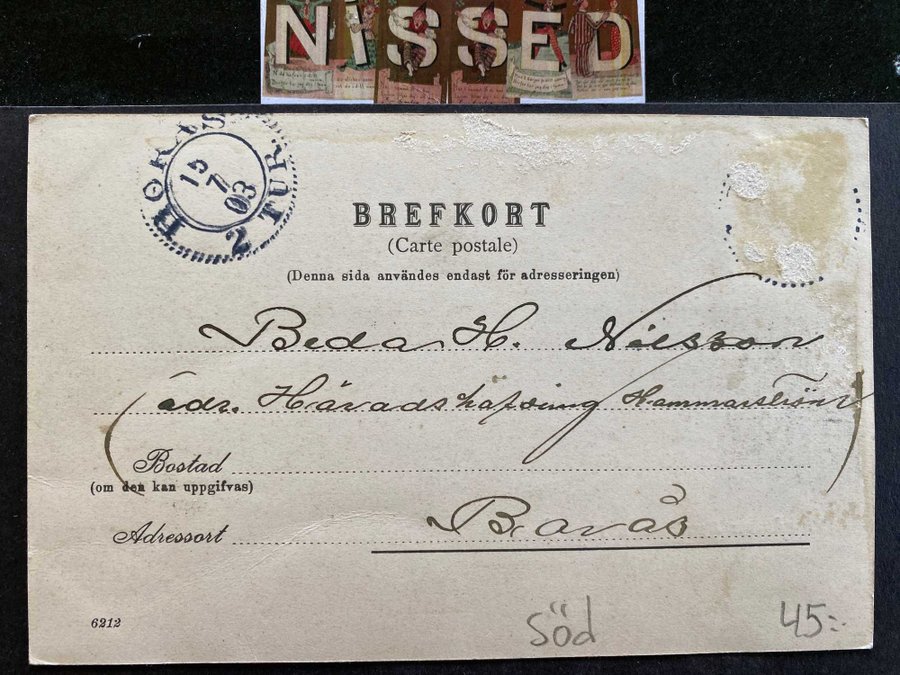 NISSED
BORÅS
15
7
03
2 TUR
BREFKORT
(Carte postale)
(Denna sida användes endast för adresseringen)
Beda H. Nilsson
(adr. Häradshöfding Hammarström)
Bostad
(om den kan uppgifvas)
Adressort Borås
6212
söd
45:-